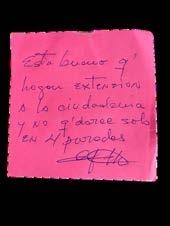 Esta bueno q'
hagan extension
a la ciudadania
y no q'darce solo
en 4 paradas